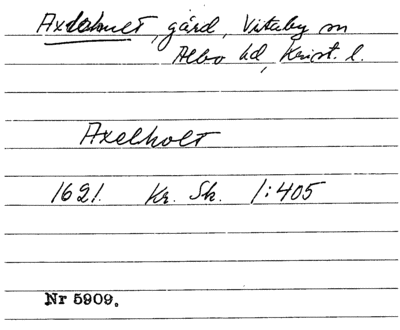 Axelshult, gård, Vitaby sn
Albo hd, Krist. l.
Axelholt
1621. Kr. Sk. 1:405
Nr 5909.